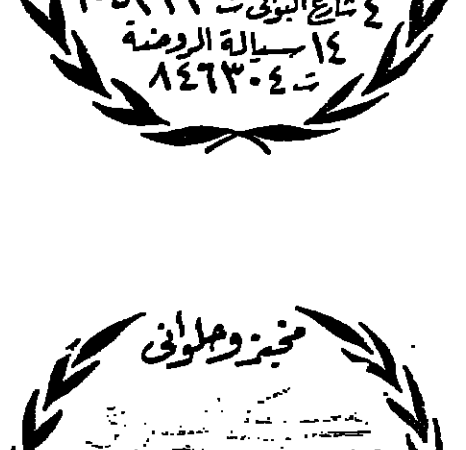 ٤ شارع البولى ت
١٤ سيالة الروضة
ت ٨٤٦٣٠٤
مخبز وحلوانى